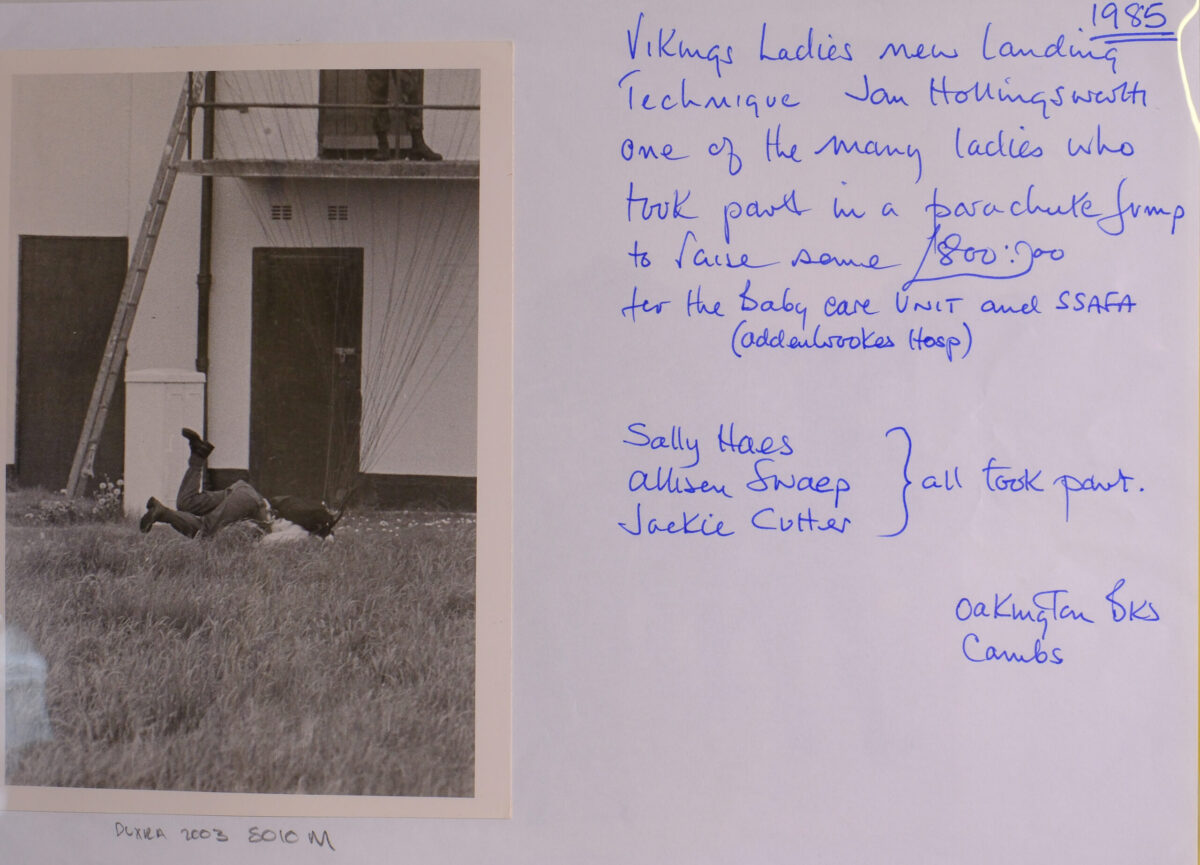 1985
Vikings Ladies new landing
Technique Jan Hollingsworth
one of the many ladies who
took part in a parachute Jump
to raise some £800:00
for the Baby care UNIT and SSAFA
(addenbrookes Hosp)
Sally Haes
allison Swaep
Jackie Cutter
all took part.
Oakington BKS
Cambs
2003 8010 M